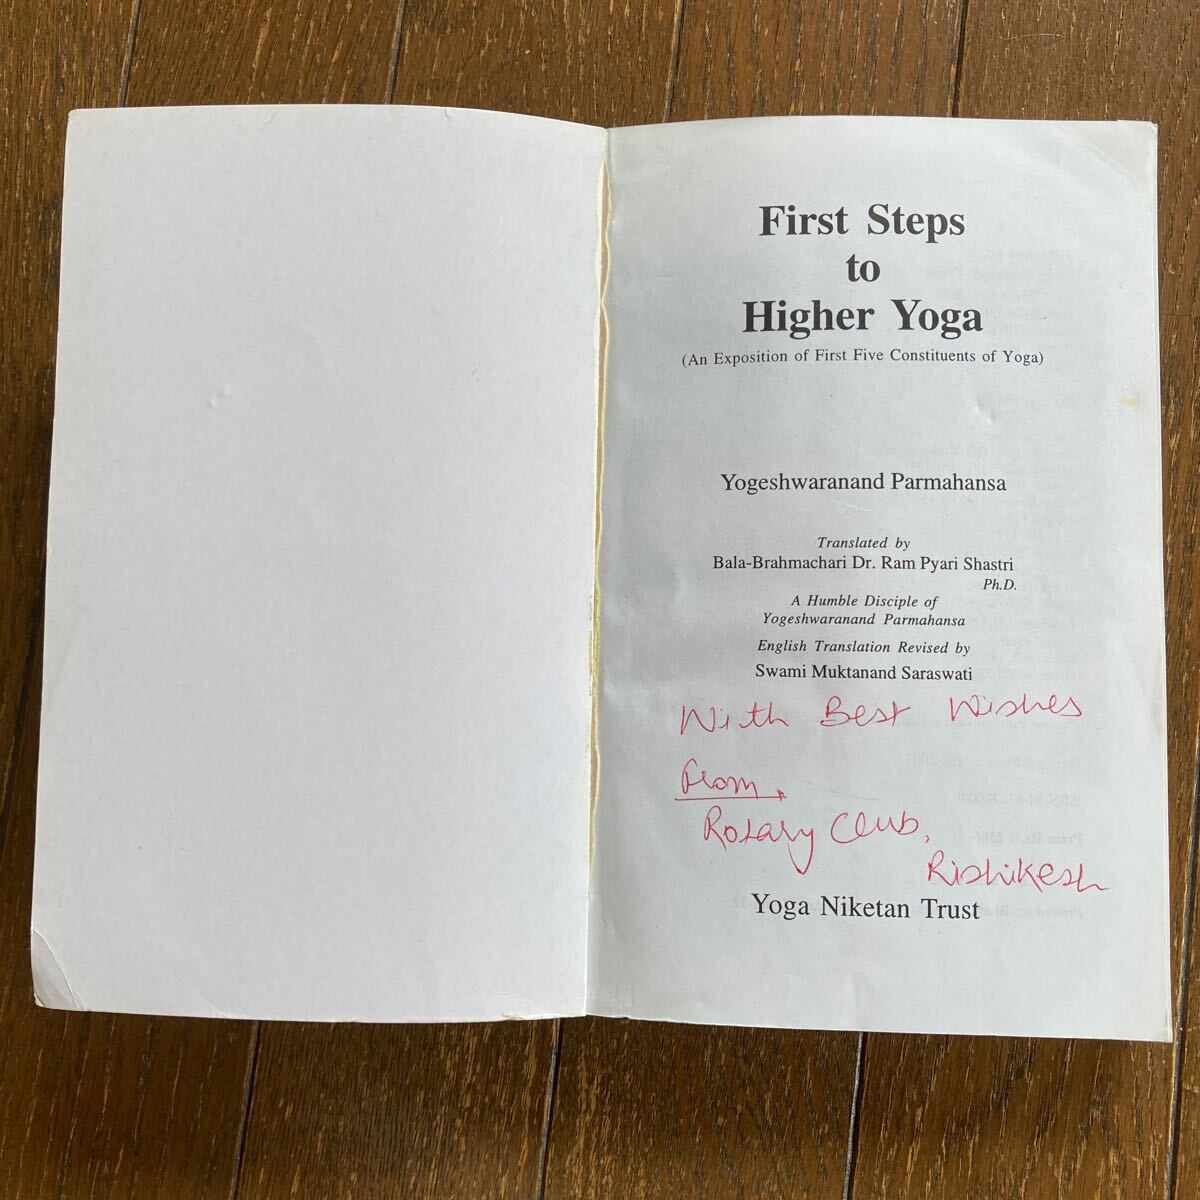 First Steps
to
Higher Yoga
(An Exposition of First Five Constituents of Yoga)
Yogeshwaranand Parmahansa
Translated by
Bala-Brahmachari Dr. Ram Pyari Shastri
Ph.D.
A Humble Disciple of
Yogeshwaranand Parmahansa
English Translation Revised by
Swami Muktanand Saraswati
With Best Wishes
From,
Rotary Club,
Rishikesh
Yoga Niketan Trust